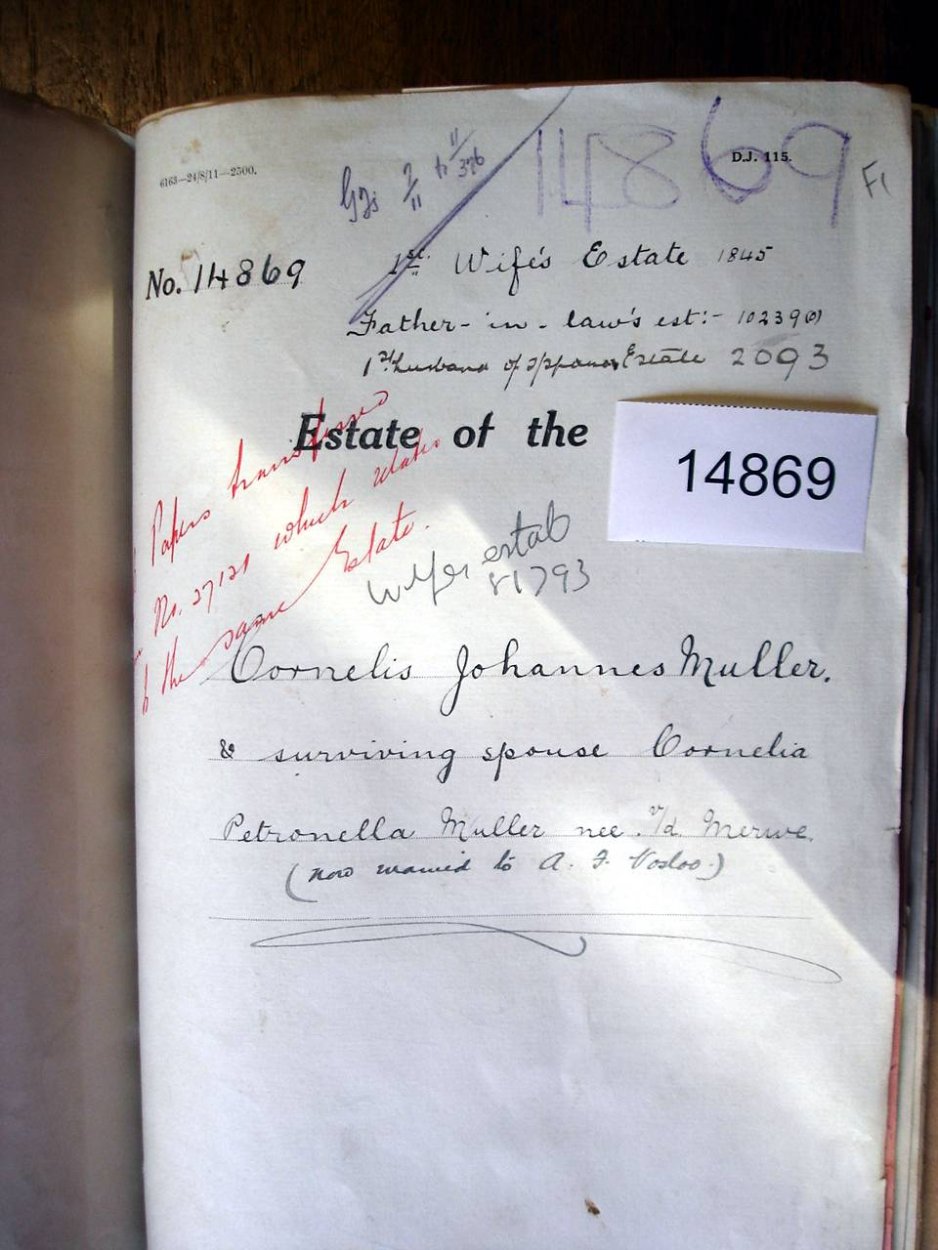 14869
D.J. 115.
6163—24/8/11—2500.
No. 14869
1st. Wife's Estate 1845
Father-in-law's est:- 10239(0)
1st husband of Estate 2093
Estate of the
14869
Papers transferred
No. 27121 which relates
to the same Estate.
Wifes estab
81793
Cornelis Johannes Muller.
& surviving spouse Cornelia
Petronella Muller nee. v/d Merwe.
(now married to A. F. Vosloo.)